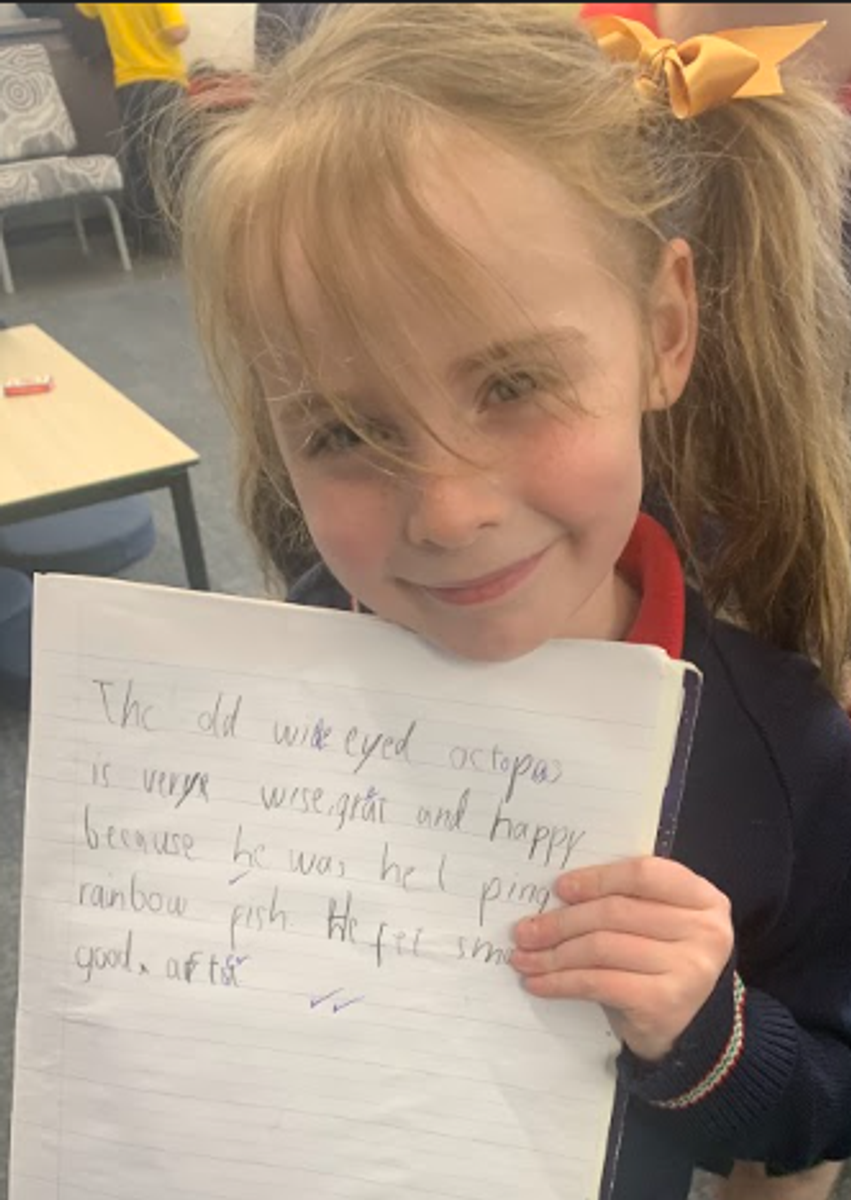 The old wide eyed octopas
is very wise, and happy
because he was hel ping
rainbow fish. He felt
good. after